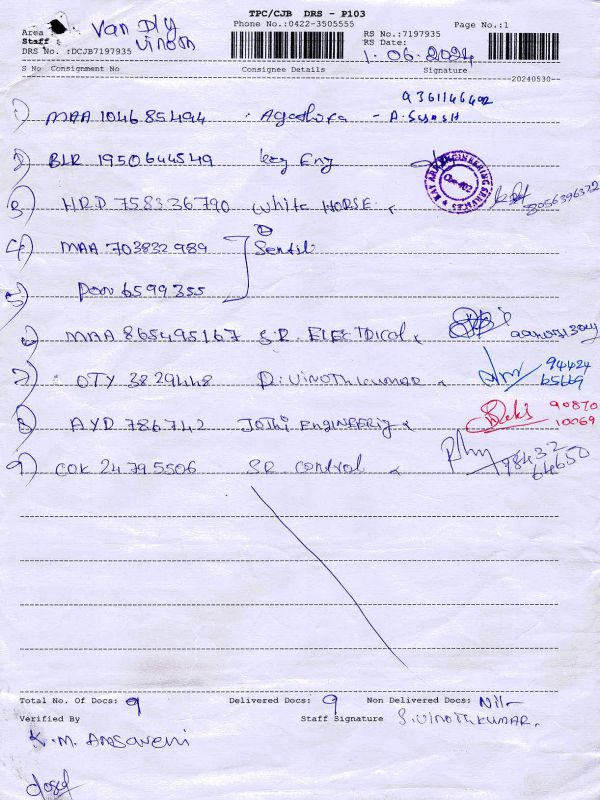 TPC/CJB DRS - P103
Area : Van Dly
Phone No.:0422-3505555
Page No.:1
Staff : Vinoth
RS No.:7197935
DRS No. :DCJB7197935
RS Date: 1.06.2024
S No Consignment No Consignee Details Signature
20240530--
1) MAA 104685494 A. Suresh
2) BLR 1950644549 Key Eng
3) HRD 758336790 White HORSE 8056396372
4) MAA 703832989
5) 6599355
6) MAA 865495167 S.R. ELECTRICAL
7) OTY 3829448 D. VINOTHKUMAR 94424 65669
8) AYD 786742 JOTHI ENGINEERING 90870 10069
9) COK 24795506 SR. Control 98432 64650
Total No. Of Docs: 9 Delivered Docs: 9 Non Delivered Docs: Nil-
Verified By Staff Signature S. VINOTHKUMAR.
K.M. Amsaveni
closed